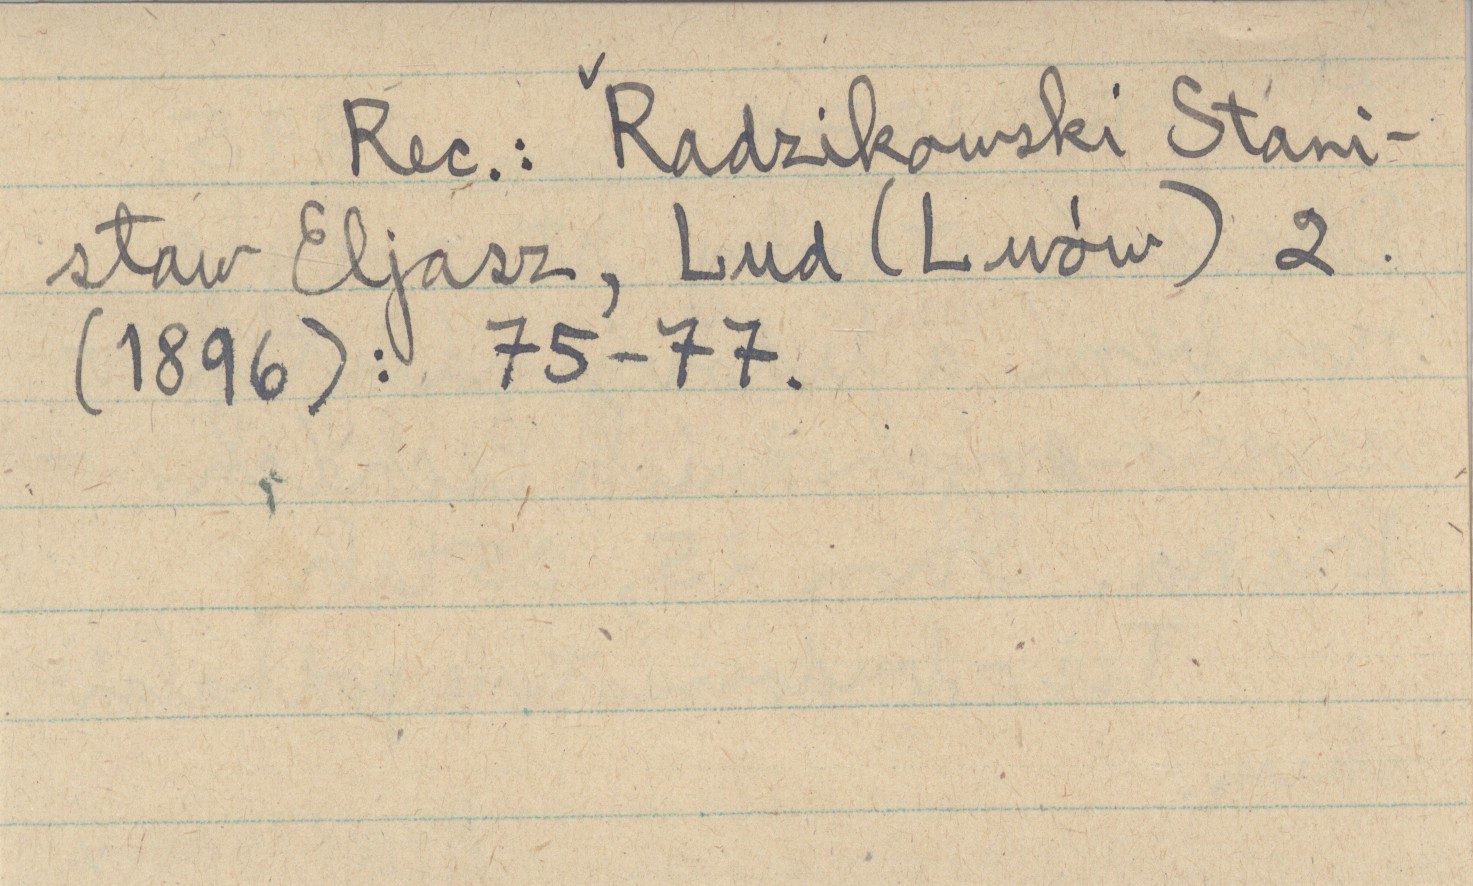 Rec.: Radzikowski Stani-
sław Eljasz, Lud (Lwów) 2
(1896): 75-77.